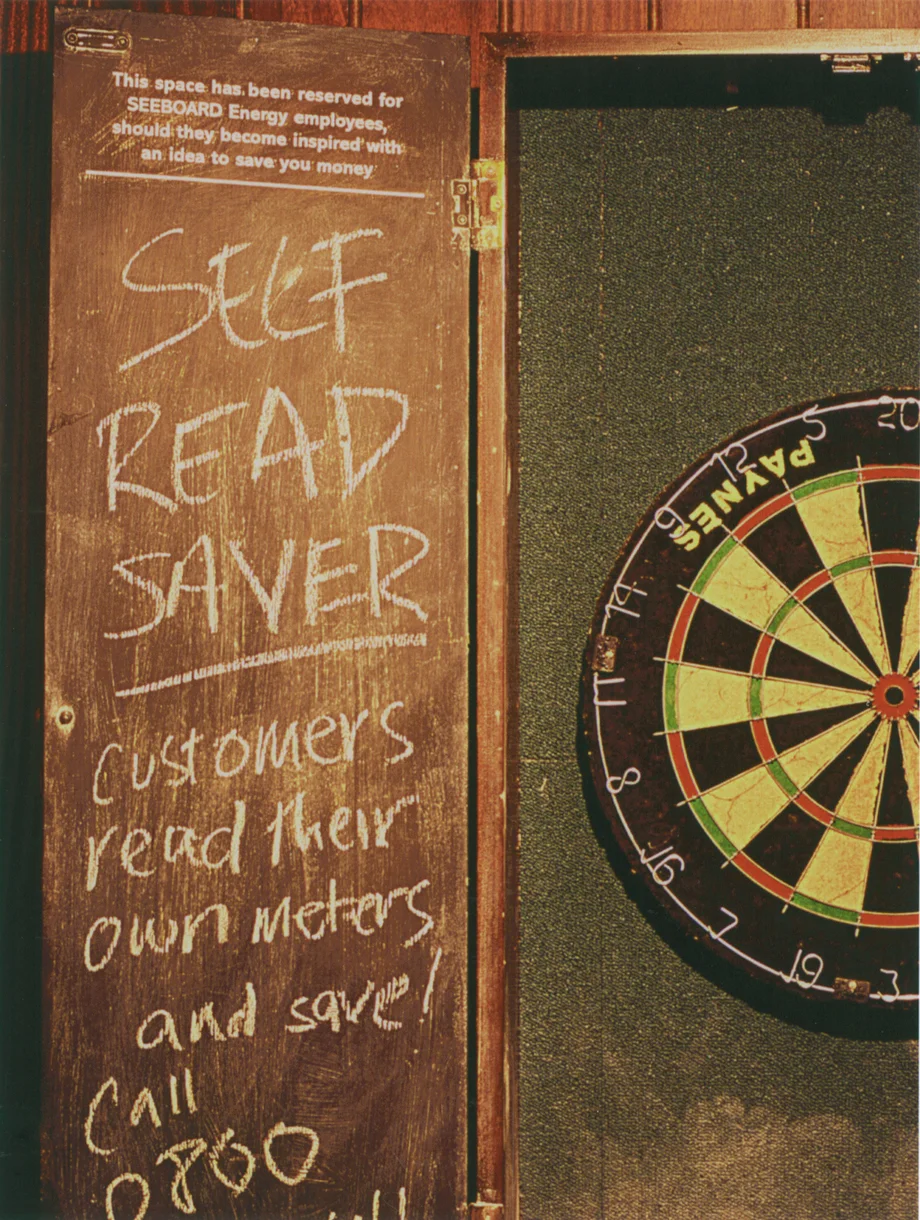 This space has been reserved for
SEEBOARD Energy employees,
should they become inspired with
an idea to save you money
SELF
READ
SAVER
customers
read their
own meters
and save!
Call
0800
20
5
12
PAYNES
9
14
11
8
16
7
19
3